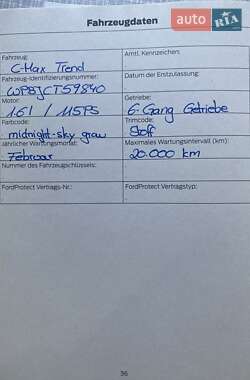 auto RIA
Fahrzeugdaten
Fahrzeug: Amtl. Kennzeichen:
C-Max Trend
Fahrzeug-Identifizierungsnummer: Datum der Erstzulassung:
WPBJCT59840
Motor: Getriebe:
1.6l / 115PS 6-Gang Getriebe
Farbcode: Trimcode:
midnight-sky grau Stoff
Jährlicher Wartungsmonat: Maximales Wartungsintervall (km):
Februar 20.000 km
Nummer des Fahrzeugschlüssels:
FordProtect Vertrags-Nr.: FordProtect Vertragstyp:
36